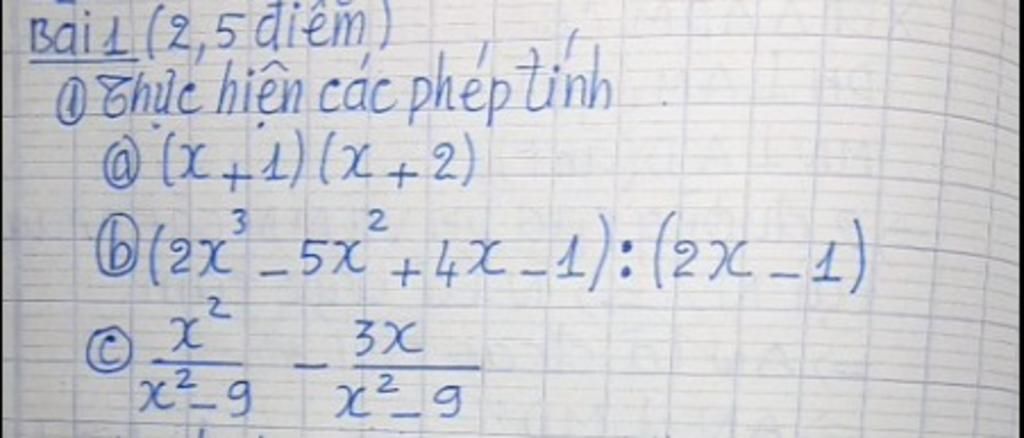 Bài 1 (2,5 điểm)
① Thực hiện các phép tính
ⓐ (x + 1)(x + 2)
ⓑ (2x³ - 5x² + 4x - 1) : (2x - 1)
ⓒ x²/(x² - 9) - 3x/(x² - 9)